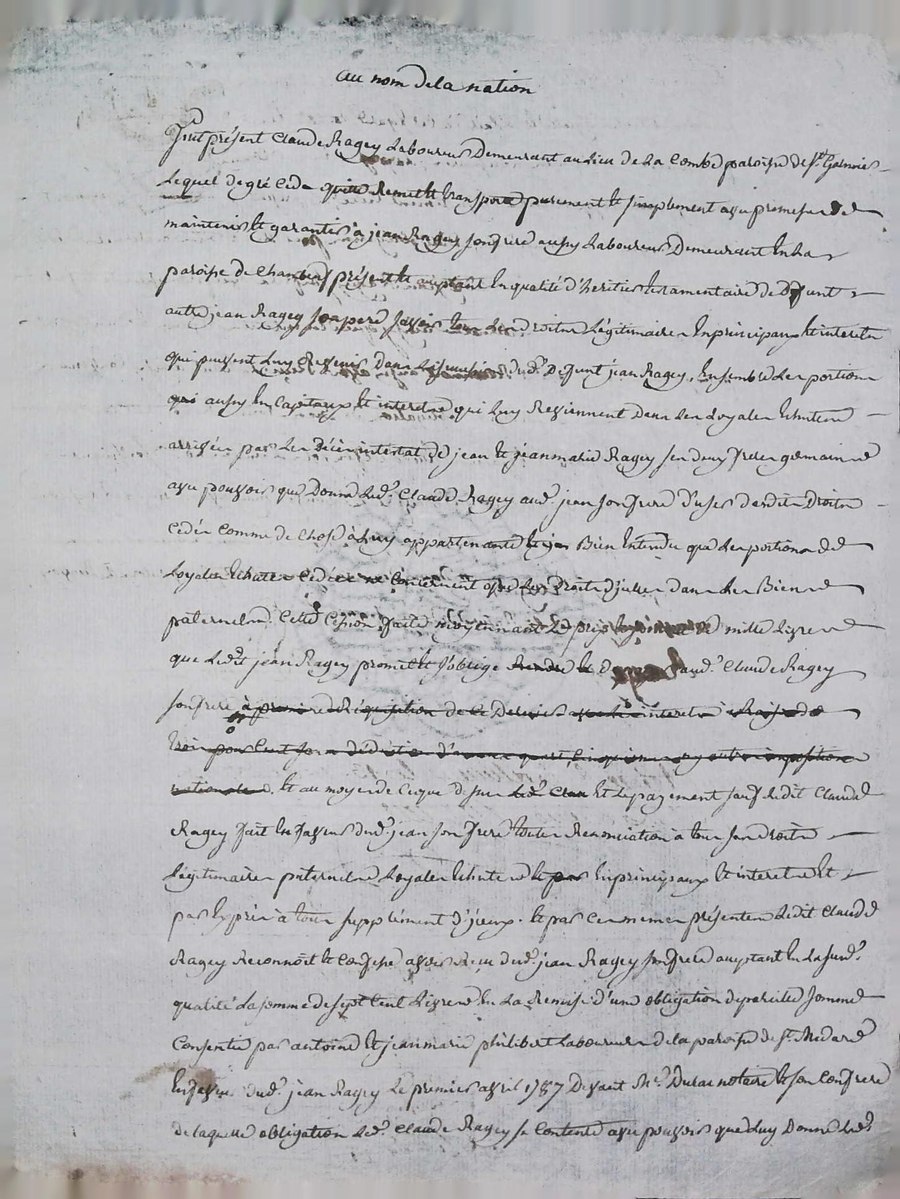 au nom de la nation
Fut présent Claude Ragey Laboureur Demeurant au Lieu de La Combe paroisse de St. Galmier
Lequel de gré Cede quitte Remet et transporte purement et simplement avec promesse de
maintenir et garantir à jean Ragey son frere aussy Laboureur Demeurant en La
paroisse de Chambeuf présent et acceptant En qualité d'heritier testamentaire de Defunt
autre jean Ragey son pere sçavoir tous Les droits Légitimaires En principaux et interets
qui peuvent Luy Revenir Dans La succession dud. Defunt jean Ragey, Ensemble Les portions
aussy En Capitaux et interets qui Luy Reviennent Dans Les Loyales Echutes
arrivées par Les Décès intestat de jean et jeanmarie Ragey ses deux freres germains
avec pouvoir que Donne Led. Claude Ragey aud. jean son frere d'user desdits Droits
Cédés Comme de Chose à Luy appartenante et Bien Entendu que Les portions de
Loyales Echutes Cédées ne Concernent que Les Droits d'icelles dans Les Biens
paternels. Cette Cession faite moyennant Le prix de mille Livres
que Ledit jean Ragey promet et s'oblige aud. Claude Ragey
son frere à premiere Réquisition de Ce Dernier avec interets à Raison de
trois pour Cent sous la déduction d'aucun quart, Cinquieme ny autre imposition
nationale. Et au moyen de Ce que dessus Led. Clau Et du payement Ledit Claude
Ragey fait En faveur dud. jean son frere toutes Renonciation à tous ses Droits
Légitimaires paternels Loyales Echutes Et En principaux et interets Et
par Exprès à tous supplément d'iceux. Et par Ces memes présentes Ledit Claude
Ragey Reconnoit et Confesse avoir Reçu dud. jean Ragey son frere acceptant En La sud.
qualité La somme de sept Cent Livres En La Remise d'une obligation de pareille somme
Consentie par antoine et jeanmarie philibert Laboureurs de la paroisse de St. Médard
En faveur dud. jean Ragey Le premier avril 1787 Devant Me. Duras notaire et son Confrere
de laquelle obligation Led. Claude Ragey se Contente avec pouvoir que Luy Donne Led.